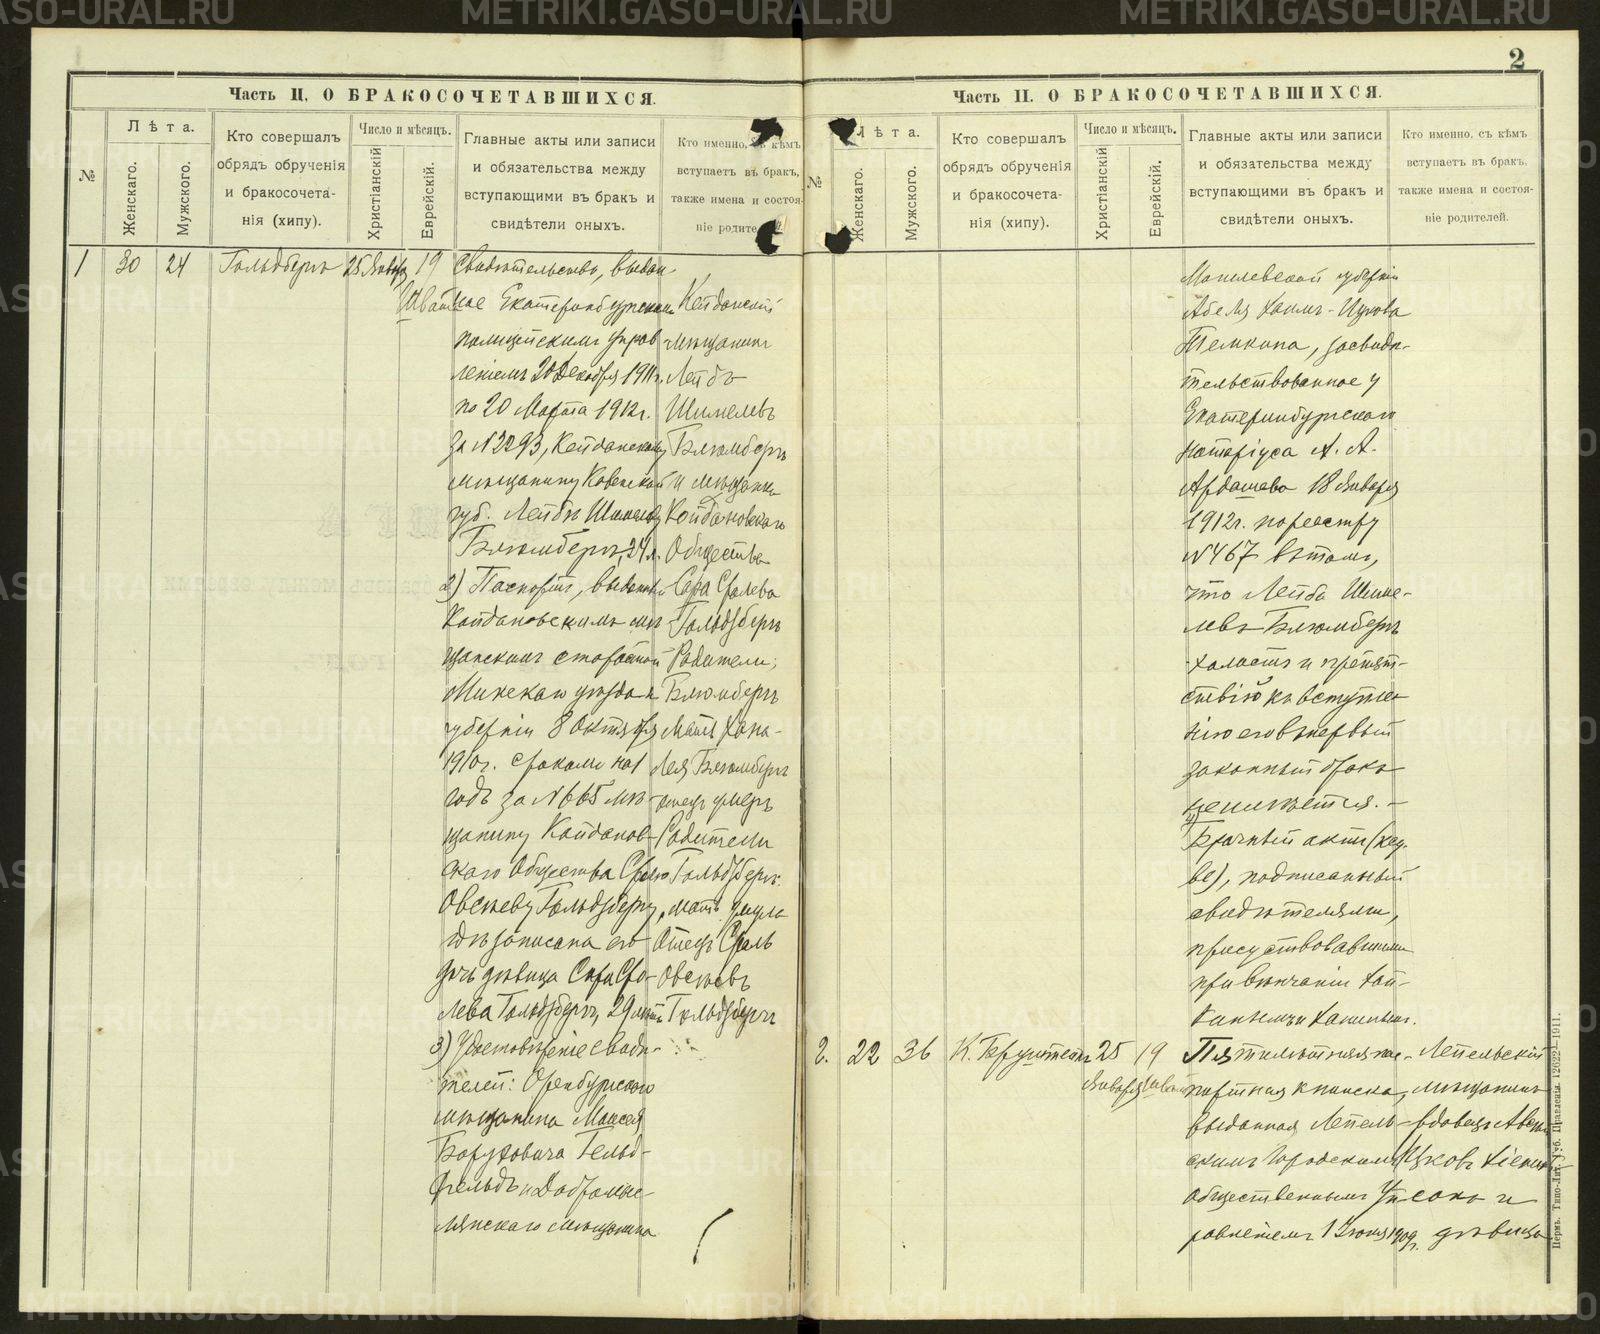 METRIKI.GASO-URAL.RU
2
Часть II. О БРАКОСОЧЕТАВШИХСЯ.
№
Лѣта.
Женскаго.
Мужского.
Кто совершалъ
обрядъ обрученія
и бракосочета-
нія (хипу).
Число и мѣсяцъ.
Христіанскій
Еврейскій.
Главные акты или записи
и обязательства между
вступающими въ бракъ и
свидѣтели оныхъ.
Кто именно, съ кѣмъ
вступаетъ въ бракъ,
также имена и состоя-
ніе родите
1 30 24 Гольдбергъ 25 Января 19
Шватъ
Свидѣтельство, выдан-
ное Екатеринбургскимъ
полицейскимъ управ-
леніемъ 20 Декабря 1911 г.
по 20 Марта 1912 г.
за № 2293, Кейданскому
мѣщанину Ковенской
губ. Лейбѣ Шимелеву
Блюмбергъ, 24 л.
2) Паспортъ, выданный
Койдановскимъ мѣ-
щанскимъ старостой
Минскаго уѣзда и
губерніи 8 Октября
1910 г. срокомъ на 1
годъ за № 665 мѣ-
щанину Койданов-
скаго Общества Сролю
Овсѣеву Гольдбергу,
гдѣ записана его
дочь дѣвица Сара Сро-
лева Гольдбергъ, 29 лѣтъ
3) Удостовѣреніе свидѣ-
телей: Оренбургскаго
мѣщанина Моисея
Боруховича Гельд-
фельдъ и Добромыс-
лянскаго мѣщанина
Кейданскій
мѣщанинъ
Лейбъ
Шимелевъ
Блюмбергъ
и мѣщанка
Койдановскаго
Общества
Сара Сролева
Гольдбергъ
Родители:
Блюмбергъ
Мать Хана-
Лея Блюмбергъ
отецъ умеръ
Родители
Гольдбергъ:
мать умерла
Отецъ Сроль
Овсѣевъ
Гольдбергъ
Часть II. О БРАКОСОЧЕТАВШИХСЯ.
№
Лѣта.
Женскаго.
Мужского.
Кто совершалъ
обрядъ обрученія
и бракосочета-
нія (хипу).
Число и мѣсяцъ.
Христіанскій
Еврейскій.
Главные акты или записи
и обязательства между
вступающими въ бракъ и
свидѣтели оныхъ.
Кто именно, съ кѣмъ
вступаетъ въ бракъ,
также имена и состоя-
ніе родителей.
Могилевской губерніи
Абеля Хаимъ-Ицкова
Темкина, засвидѣ-
тельствованное у
Екатеринбургскаго
Нотаріуса А. А.
Ардашева 18 Января
1912 г. по реестру
№ 467 въ томъ,
что Лейба Шиме-
левъ Блюмбергъ
холостъ и препят-
ствій къ вступле-
нію его въ первый
законный бракъ
не имѣется.
Брачный актъ (
), подписанный
свидѣтелями,
присутствовавшими
при вѣнчаніи
2. 22 36 К. 25 19
Января
Пятилѣтняя пас-
портная книжка,
выданная Лепель-
скимъ Городскимъ
Общественнымъ Уп-
равленіемъ 1 Іюня 1909 г.
Лепельскій
мѣщанинъ
вдовецъ
Ицковъ
и
дѣвица
Пермь. Типо-Лит. Губ. Правленія. 12622—1911.